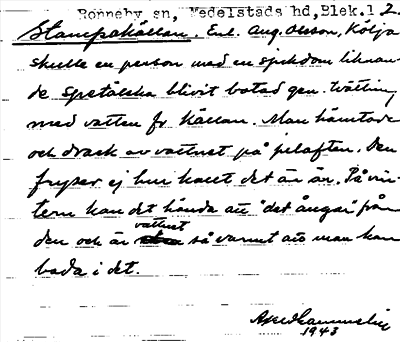 Ronneby sn, Medelstads hd, Blek.l 2.
Stampakällan. Enl. Aug. Olsson, Kölja
skulle en person med en sjukdom liknan-
de spetälska blivit botad gen. tvättning
med vatten fr källan. Man hämtade
och drack av vattnet på julafton. Den
fryser ej hur kallt det än är. På vin-
tern kan det hända att "det ångar" från
den och är vattnet så varmt att man kan
bada i det.
1943